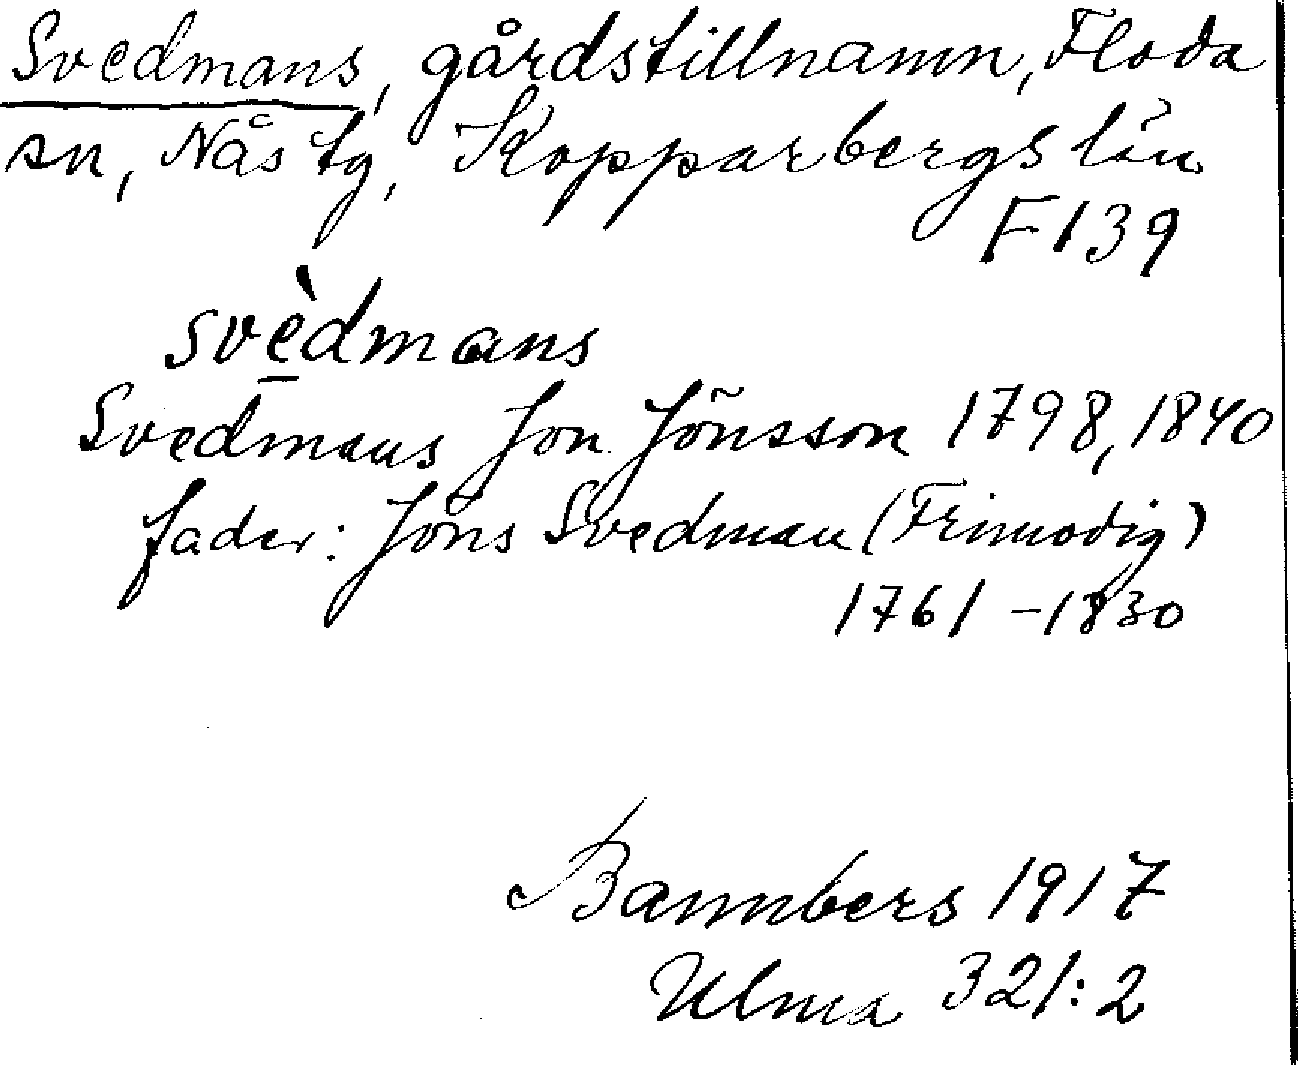 Svedmans, gårdstillnamn, Floda
sn, Nås tg, Kopparbergs län
F 139
svè̲dmans
Svedmans Jon Jönsson 1798, 1840
fader: Jöns Svedman (Frimodig)
1761 – 1830
Bannbers 1917
Ulma 321:2